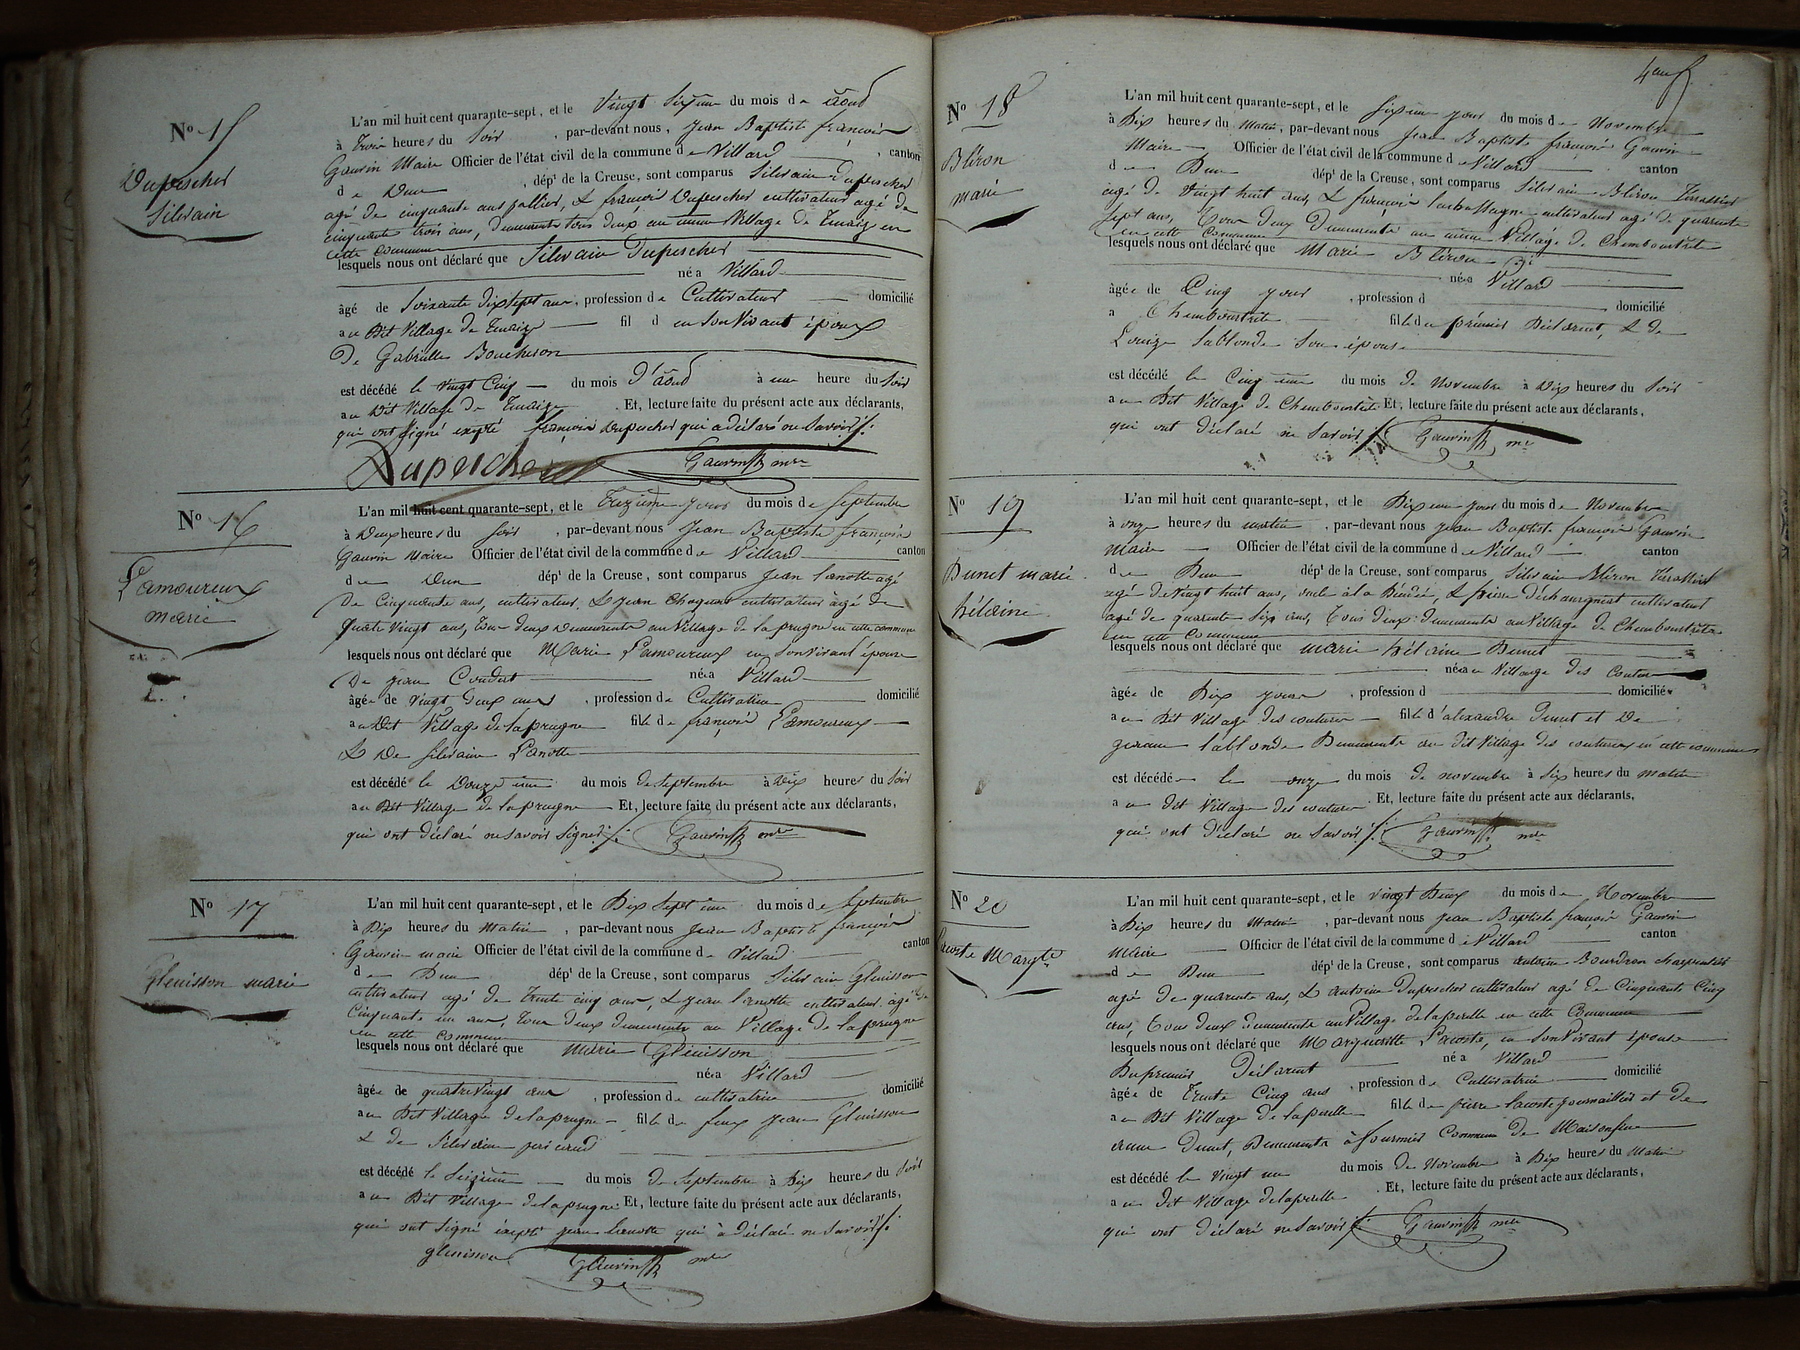 N° 15
Dupeischer
Silvain
L'an mil huit cent quarante-sept, et le Vingt Sixieme du mois de aoud
à Trois heures du Soir, par-devant nous, Jean Baptiste françois
Gauvin Maire Officier de l'état civil de la commune de Villard, canton
de Dun, dépt de la Creuse, sont comparus Silvain Dupeischer
agé de cinquante ans, & françois Dupeischer cultivateur agé de
cinquante trois ans, demeurents tous deux au même Village de en
cette commune
lesquels nous ont déclaré que Silvain Dupeischer
né a Villard
âgé de Soixante Dix sept ans, profession de Cultivateur domicilié
au Dit Village de fil d en Son Vivant époux
De Gabrielle Boucheron
est décédé le vingt Cinq du mois D'aoud à une heure du Soir
au Dit Village de . Et, lecture faite du présent acte aux déclarants,
qui ont signé excepté françois Dupeischer qui a déclaré ne Savoir ./.
Dupeicher Gauvin mre
N° 16
L'amoureux
marie
L'an mil huit cent quarante-sept, et le Treizieme jour du mois de Septembre
à Deux heures du Soir, par-devant nous Jean Baptiste françois
Gauvin Maire Officier de l'état civil de la commune de Villard canton
de Dun dépt de la Creuse, sont comparus Jean Lanotte agé
De Cinquante ans, cultivateur, & Jean cultivateur agé de
Quatre Vingt ans, tous deux Demeurents au Village de la prugne en cette commune
lesquels nous ont déclaré que Marie L'amoureux en Son Vivant épouse
De Jean Coudert née a Villard
âgée de Vingt Deux ans, profession de Cultivatrice domicilié
au Dit Village de la prugne fille de françois L'amoureux
& De Silvaine Lanotte
est décédé le Douzieme du mois de Septembre à Dix heures du Soir
au Dit Village de la prugne Et, lecture faite du présent acte aux déclarants,
qui ont déclaré ne savoir signer ./. Gauvin mre
N° 17
Gleuisson marie
L'an mil huit cent quarante-sept, et le Dix Septieme du mois de Septembre
à Dix heures du Matin, par-devant nous Jean Baptiste françois
Gauvin maire Officier de l'état civil de la commune de Villard canton
de Dun dépt de la Creuse, sont comparus Silvain Gleuisson
cultivateur agé de Trente cinq ans, & Jean Lanotte cultivateur agé de
Cinquante un ans, tous deux demeurents au Village de la prugne
en cette commune
lesquels nous ont déclaré que Marie Gleuisson
née a Villard
âgée de quatre Vingt ans, profession de cultivatrice domicilié
au Dit Village de la prugne fille de feux Jean Gleuisson
& de Silvaine
est décédé le Seizieme du mois de Septembre à Dix heures du Soir
au Dit Village de la prugne Et, lecture faite du présent acte aux déclarants,
qui ont signé excepté jean lanotte qui à déclaré ne Savoir ./.
gleuisson Gauvin mre
4
N° 18
Bliron
marie
L'an mil huit cent quarante-sept, et le Sixieme jour du mois de Novembre
à Dix heures du Matin, par-devant nous Jean Baptiste françois Gauvin
Maire Officier de l'état civil de la commune de Villard canton
de Dun dépt de la Creuse, sont comparus Silvain Bliron
agé de Vingt huit ans, & françois cultivateur agé de quarente
Sept ans, Tous deux Demeurents au même Village de Chemboustete
en cette Commune
lesquels nous ont déclaré que Marie Bliron
née a Villard
âgée de Cinq jours, profession d domicilié
a Chemboustete fille du prémier Déclarent, & De
Louize lablonde Son épouse
est décédé le Cinquieme du mois de Novembre à Dix heures du Soir
au Dit Village de Chemboustete Et, lecture faite du présent acte aux déclarants,
qui ont déclaré ne Savoir ./. Gauvin mre
N° 19
Dunet marie
hélaine
L'an mil huit cent quarante-sept, et le jour du mois de Novembre
à onze heures du matin, par-devant nous Jean Baptiste françois Gauvin
Maire Officier de l'état civil de la commune de Villard canton
de Dun dépt de la Creuse, sont comparus Silvain Bliron
agé de Vingt huit ans, & pierre cultivateur
agé de quarente Six ans, tous deux demeurents au Village de Chemboustete
en cette Commune
lesquels nous ont déclaré que marie hélaine Dunet
née au Village des Couture
âgée de Dix jours, profession d domicilié
au Dit Village des couture fille d'alexandre Dunet et De
lablonde Demeurents au dit Village des coutures en cette commune
est décédé le onze du mois de novembre à Six heures du matin
au dit Village des couture . Et, lecture faite du présent acte aux déclarants,
qui ont déclaré ne Savoir ./. Gauvin mre
N° 20
Lacoste Margte
L'an mil huit cent quarante-sept, et le Vingt Deux du mois de Novembre
à Dix heures du Matin, par-devant nous Jean Baptiste françois Gauvin
Maire Officier de l'état civil de la commune de Villard canton
de Dun dépt de la Creuse, sont comparus antoine Bourdron charpentier
agé de quarente ans, & antoine Dupeischer cultivateur agé de Cinquante Cinq
ans, tous deux demeurents au Village de laperelle en cette Commune
lesquels nous ont déclaré que Marguerite Lacoste, en Son Vivant épouse
Du premier Déclarent né a Villard
âgée de Trente Cinq ans, profession de Cultivatrice domicilié
au Dit Village de laperelle fille de pierre lacoste journaillier et de
anne Dunet, Demeurents à fournier Commune de Maisonfeine
est décédé le vingt un du mois de Novembre à Dix heures du Matin
au dit Village de laperelle . Et, lecture faite du présent acte aux déclarants,
qui ont déclaré ne Savoir ./. Gauvin mre